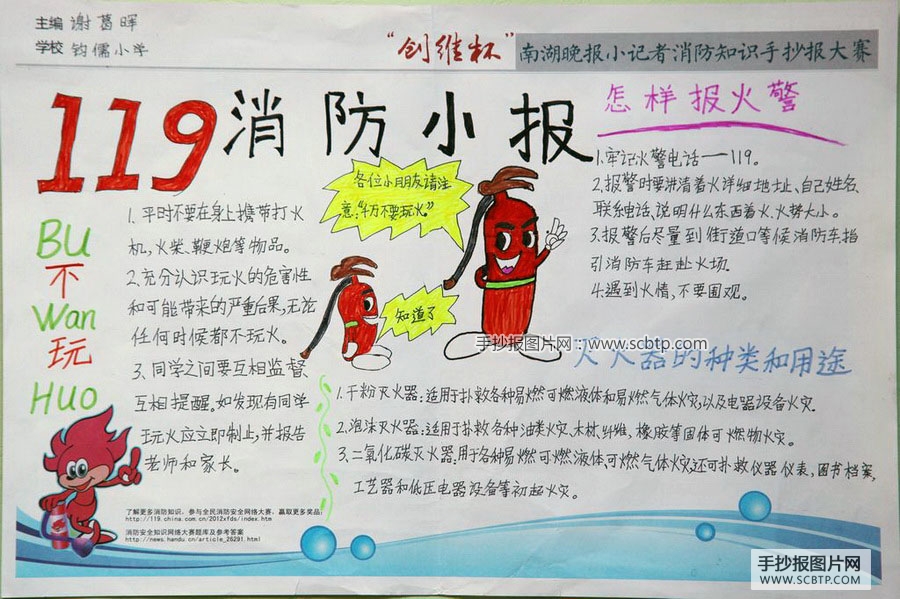 主编 谢葛晖
学校 钧儒小学
“创维杯”南湖晚报小记者消防知识手抄报大赛
119消防小报
BU
不
Wan
玩
HUO
1.平时不要在身上携带打火
机,火柴、鞭炮等物品。
2.充分认识玩火的危害性
和可能带来的严重后果,无论
任何时候都不玩火。
3.同学之间要互相监督、
互相提醒。如发现有同学
玩火应立即制止,并报告
老师和家长。
各位小朋友请注
意:“千万不要玩火。”
知道了
怎样报火警
1.牢记火警电话——119。
2.报警时要讲清着火详细地址、自己姓名、
联系电话、说明什么东西着火、火势大小。
3.报警后尽量到街道口等候消防车,指
引消防车赶赴火场.
4.遇到火情,不要围观。
手抄报图片网:www.scbtp.com
灭火器的种类和用途
1.干粉灭火器:适用于扑救各种易燃可燃液体和易燃气体火灾,以及电器设备火灾.
2.泡沫灭火器:适用于扑救各种油类火灾、木材、纤维,橡胶等固体可燃物火灾。
3.二氧化碳灭火器:用于各种易燃可燃液体,可燃气体火灾还可扑救仪器仪表,图书档案,
工艺器和低压电器设备等初起火灾。
了解更多消防知识,参与全民消防安全网络大赛,赢取更多奖品:
http://119.china.com.cn/2012xfds/index.htm
消防安全知识网络大赛题库及参考答案
http://news.handu.cn/article_26291.html
手抄报图片网
WWW.SCBTP.COM